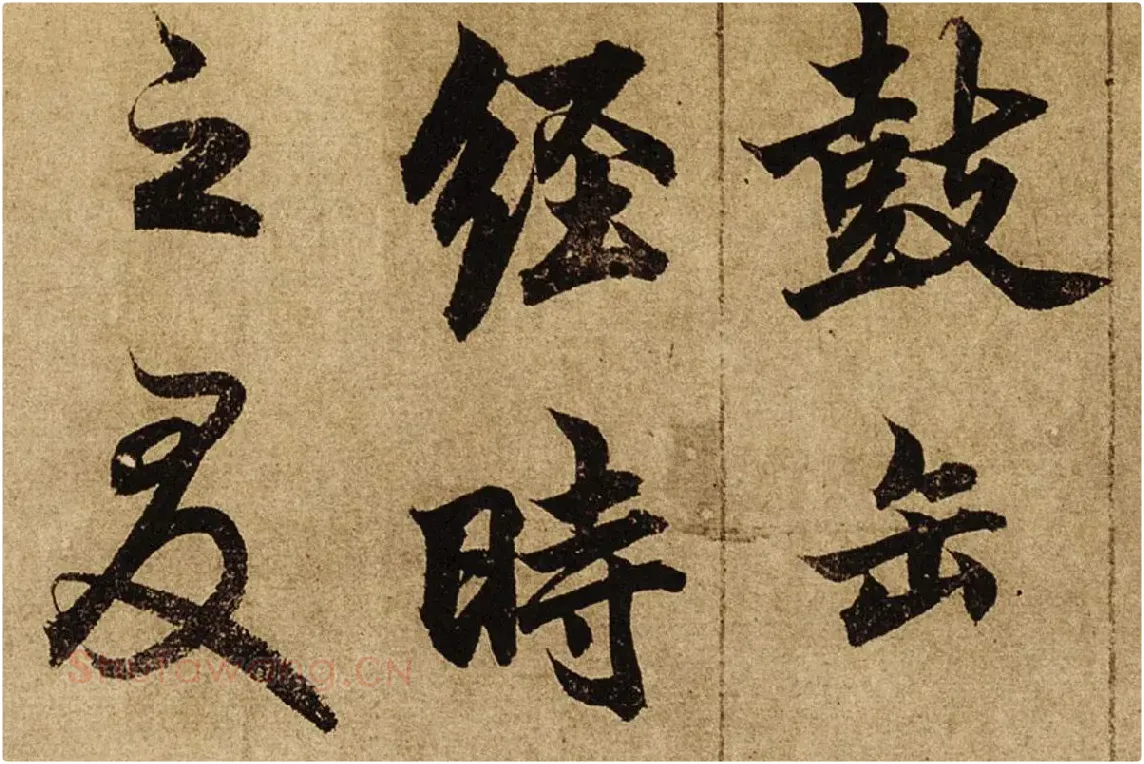 鼓缶
經時
之
Shufawang.CN